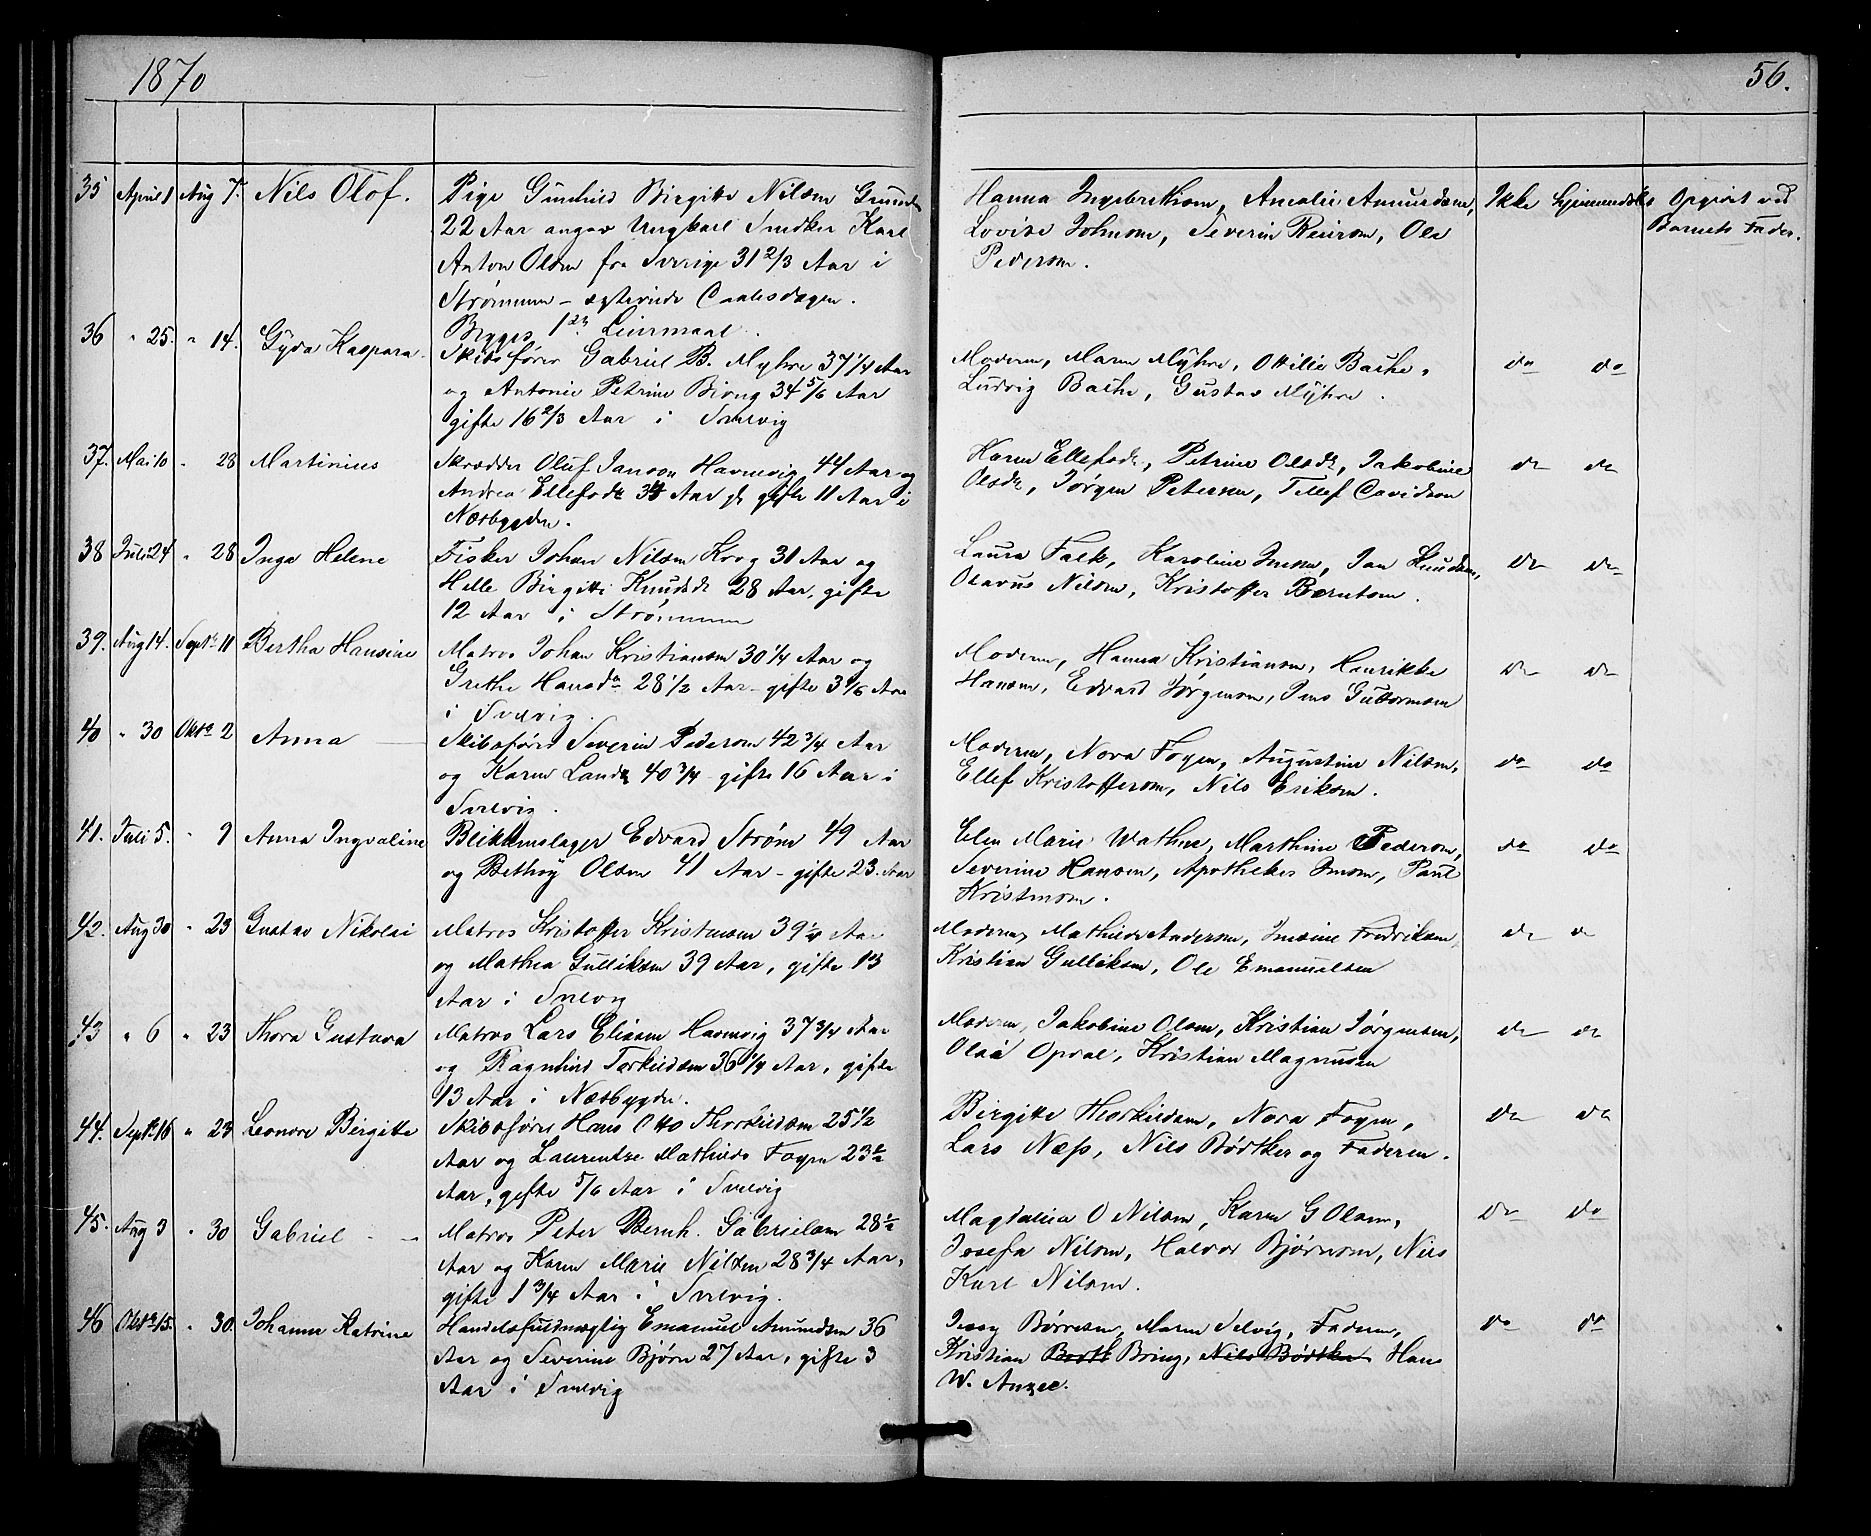 1870
56.
35 April 1 Aug 7. Nils Olof. Pige Gunhild Birgitte Nilsen
22 Aar angav Ungkarl Snedker Karl
Anton Olsen fra Sverige 31 2/3 Aar i
Strømmen
Begges 1ste Leiermaal.
Hanna Ingebrethsen, Amalie Amundsen,
Lovise Johnsen, Severin Reiersen, Ole
Pedersen.
Ikke hjemmedøbt Opgivet ved
Barnets Fader.
36 " 25. " 14. Gyda Kaspara. Skibsfører Gabriel B. Myhre 37 1/4 Aar
og Antonie Petrine Bring 34 5/6 Aar
gifte 16 2/3 Aar i Svelvig
Moderen, Maren Myhre, Ottilie Bache,
Ludvig Bache, Gustav Myhre.
do do
37. Mai 10 " 28 Martinius Skrædder Oluf Jansen Havnevig 44 Aar og
Andrea Ellefsdtr Aar gifte 11 Aar i
Næsbygden.
Karen Ellefsdtr, Petrine Olsdtr, Jakobine
Olsdtr, Jørgen Petersen, Tellef Davidsen
do do
38 Juli 24 " 28 Inga Helene Fisker Johan Nilsen Krog 31 Aar og
Helle Birgitte Knudsdtr 28 Aar, gifte
12 Aar i Strømmen
Laura Falk, Karoline Jensen, Jan Knudsen,
Olavus Nilsen, Kristoffer Berntsen.
do do
39. Aug 14. Septr 11 Bertha Hansine Matros Johan Kristiansen 30 1/4 Aar og
Grethe Hansdtr 28 1/2 Aar gifte 3 1/6 Aar
i Svelvig.
Moderen, Hanna Kristiansen, Henrikke
Hansen, Edvard Jørgensen, Jens Guttormsen
do do
40 " 30 Oktr 2 Anna Skibsfører Severin Pedersen 42 3/4 Aar
og Karen Lande 40 3/4 gifte 16 Aar i
Svelvig.
Moderen, Nora Fogen, Augustine Nilsen,
Ellef Kristoffersen, Nils Eriksen.
do do
41. Juli 5. " 9 Anna Ingvaline Blikkenslager Edvard Strøm 49 Aar
og Bethsy Olsen 41 Aar – gifte 23 Aar
Elen Marie Wathne, Marthine Pedersen,
Severine Hansen, Apotheker Jensen, Paul
Kristensen.
do do
42. Aug 30 " 23 Gustav Nikolai Matros Kristoffer Kristensen 39 1/4 Aar
og Mathea Gulliksen 39 Aar, gifte 13
Aar i Svelvig
Moderen, Mathilde Andersen, Jensine Fredriksen,
Kristian Gulliksen, Ole Emanuelsen
do do
43 " 6 " 23 Thora Gustava Matros Lars Eliasen Havnevig 37 3/4 Aar
og Ragnhild Torkildsen 36 1/4 Aar, gifte
13 Aar i Næsbygden.
Moderen, Jakobine Olsen, Kristian Jørgensen,
Olai Opdal, Kristian Magnusen
do do
44. Septr 16 " 23 Leonore Birgitte Skibsfører Hans Otto Thorkildsen 25 1/2
Aar og Laurentze Mathilde Fogen 23 1/2
Aar, gifte 5/6 Aar i Svelvig
Birgitte Thorkildsen, Nora Fogen,
Lars Næss, Nils Bødtker og Faderen.
do do
45. Aug 3 " 30 Gabriel Matros Peter Bernh. Gabrielsen 28 1/2
Aar og Karen Marie Nilsen 28 3/4 Aar,
gifte 1 3/4 Aar i Svelvig.
Magdalena O Nilsen, Karen G Olsen,
Josefa Nilsen, Halvor Bjørnsen, Nils
Karl Nilsen.
do do
46 Oktr 15. " 30. Johanne Katrine Handelsfuldmægtig Emanuel Amundsen 36
Aar og Severine Bjørn 27 Aar, gifte 3
Aar i Svelvig
Jensy Børresen, Maren Selvig, Faderen,
Kristian Bring, Nils Bødtker Hans
W.
do do